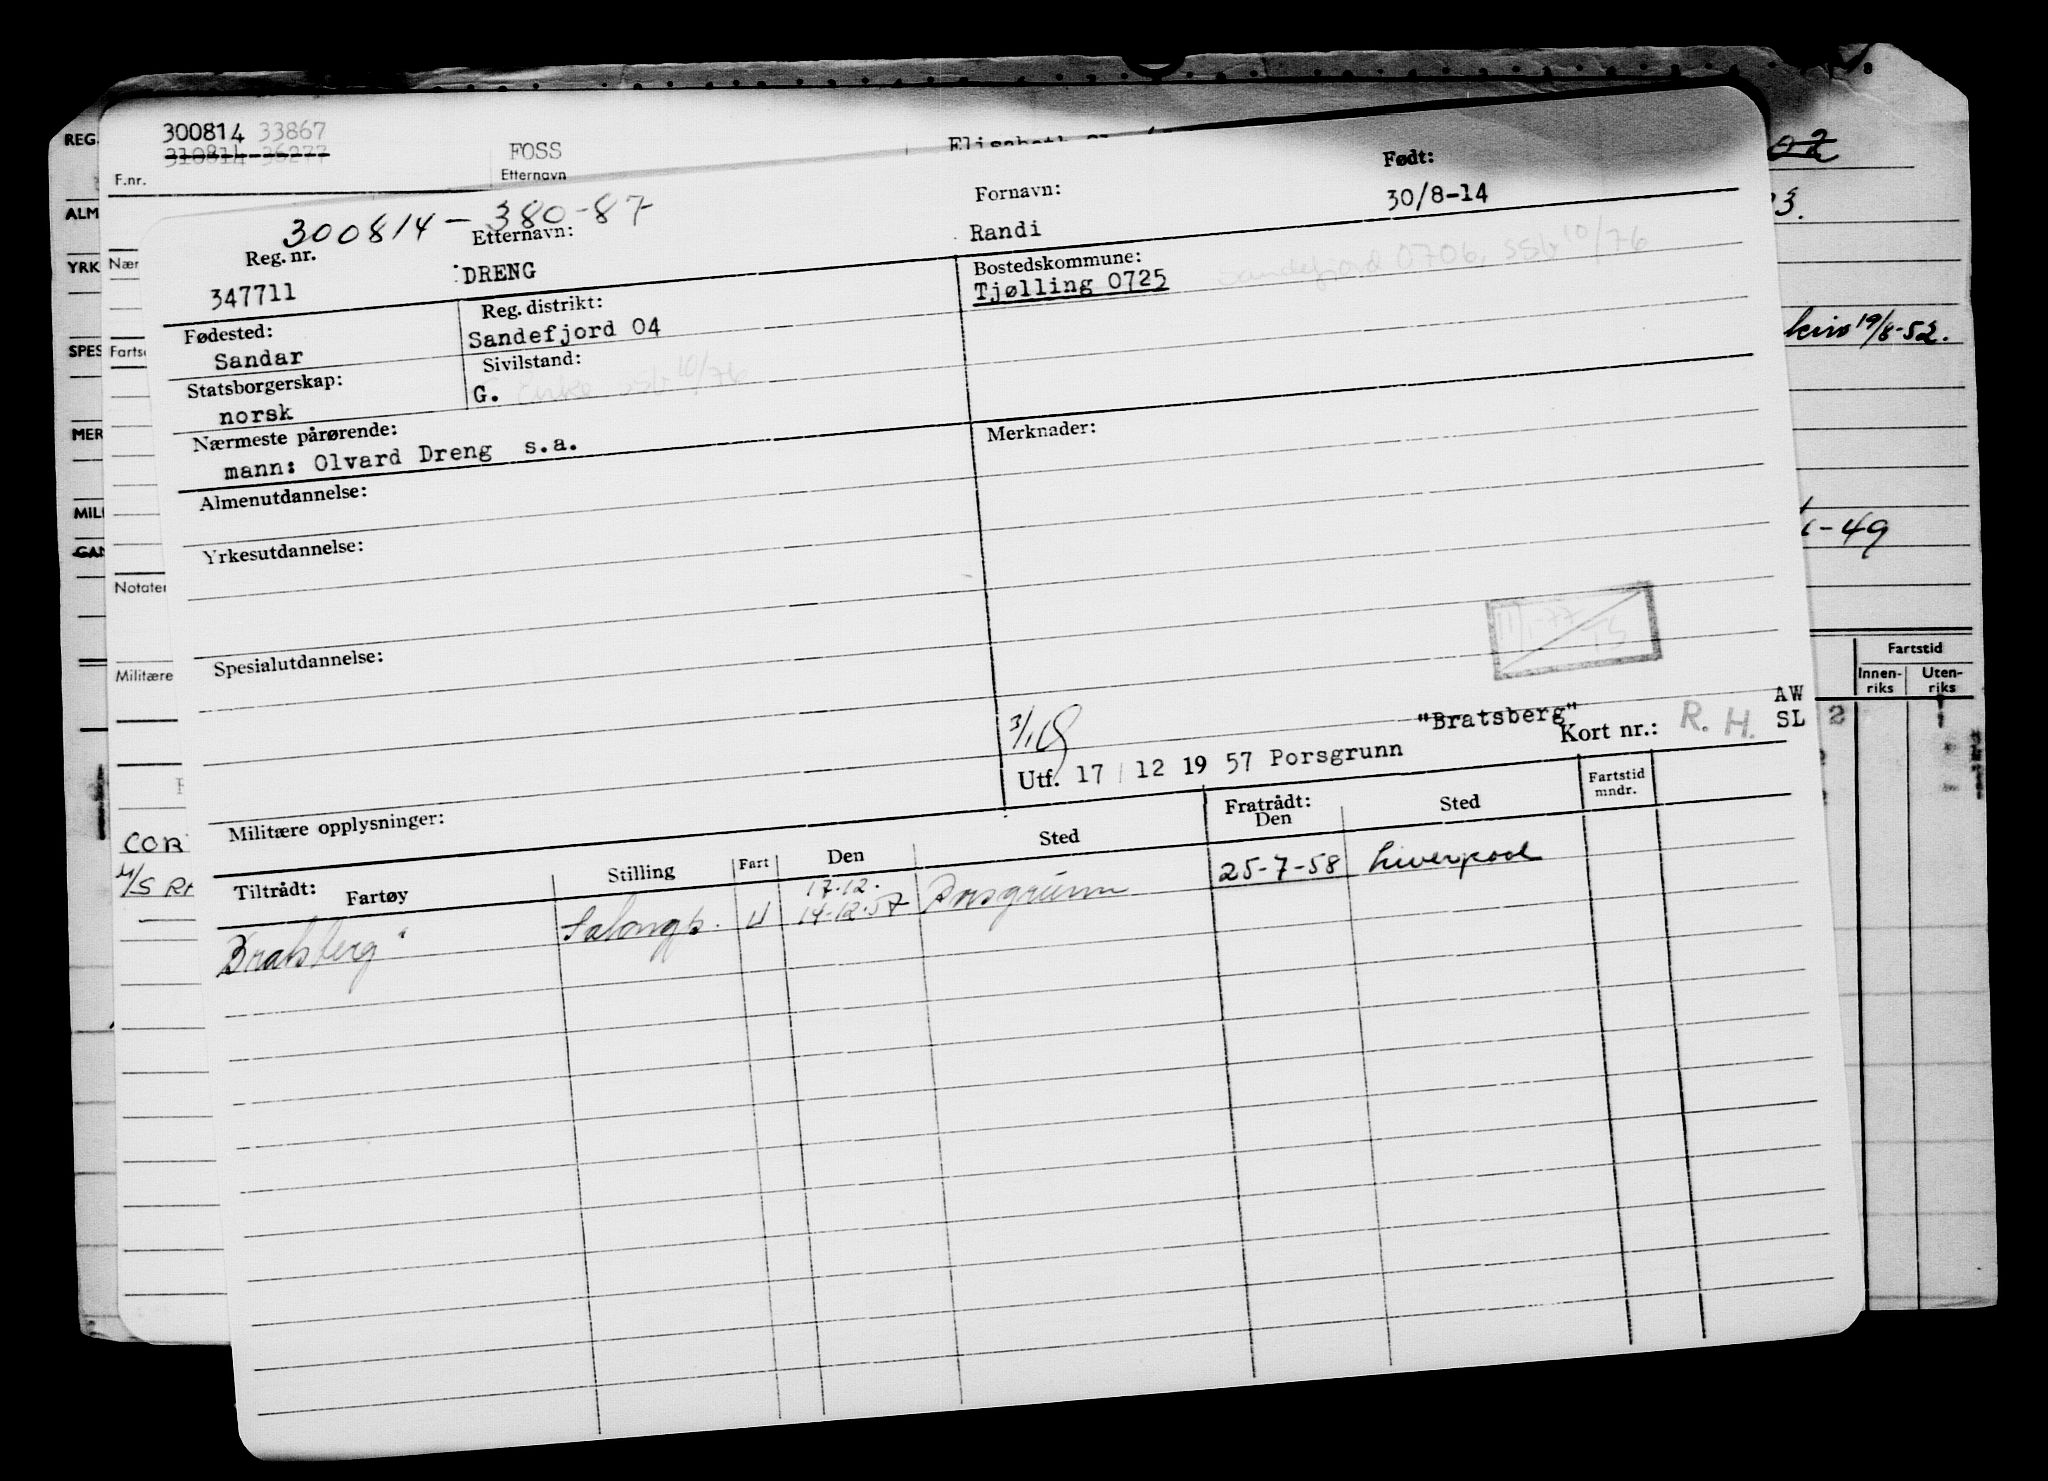 REG.
300814 33867
310814 36277
F.nr.
FOSS
Etternavn
02
ALM
Nær
YRK
Fartsc
SPES
MER
MILI
GAN
Notater
Militære
3.
19/8-52.
-49
Fartstid
Innen-
riks
Uten-
riks
2
COR
M/S RI
300814 - 380-87
Reg. nr.
347711
Etternavn:
DRENG
Fornavn:
Randi
Født:
30/8-14
Fødested:
Sandar
Reg. distrikt:
Sandefjord 04
Bostedskommune:
Tjølling 0725
Sandefjord 0706, SSb 10/76
Statsborgerskap:
norsk
Sivilstand:
G.
Enke SSb 10/76
Nærmeste pårørende:
mann: Olvard Dreng s.a.
Merknader:
Almenutdannelse:
Yrkesutdannelse:
Spesialutdannelse:
11/1-77
TS
Militære opplysninger:
"Bratsberg"
AW
SL
Kort nr.: R. H.
Utf. 17 / 12 19 57 Porsgrunn
Tiltrådt:
Fartøy
Stilling
Fart
Den
Sted
Fratrådt:
Den
Sted
Fartstid
mndr.
17.12.
Bratsberg" Salongp. U 14-12-57 Porsgrunn 25-7-58 Liverpool